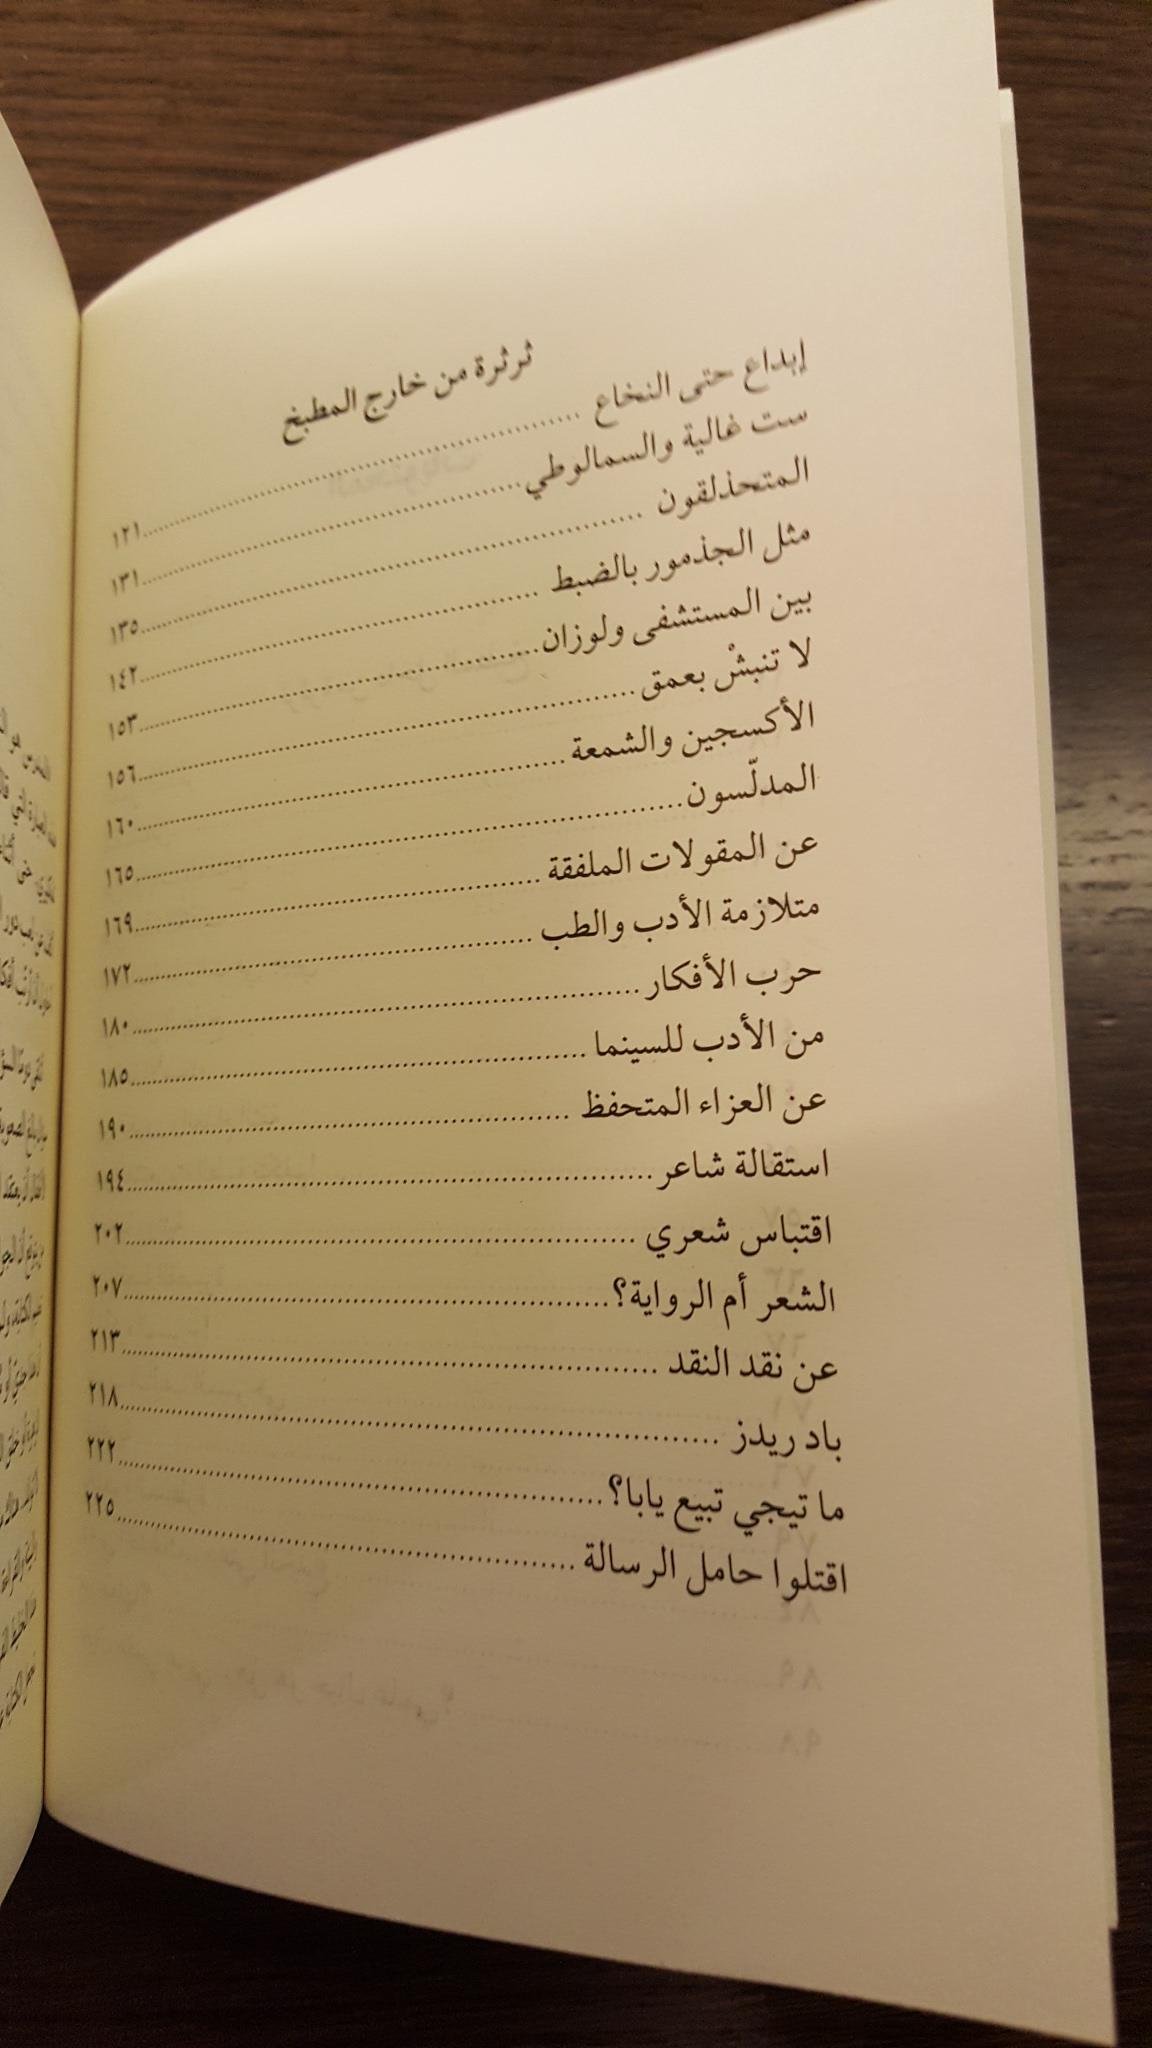 ثرثرة من خارج المطبخ
إبداع حتى النخاع ........ ١٢١
ست غالية والسمالوطي ........ ١٣١
المتحذلقون ........ ١٣٥
مثل الجذمور بالضبط ........ ١٤٢
بين المستشفى ولوزان ........ ١٥٣
لا تنبشْ بعمق ........ ١٥٦
الأكسجين والشمعة ........ ١٦٠
المدلّسون ........ ١٦٥
عن المقولات الملفقة ........ ١٦٩
متلازمة الأدب والطب ........ ١٧٢
حرب الأفكار ........ ١٨٠
من الأدب للسينما ........ ١٨٥
عن العزاء المتحفظ ........ ١٩٠
استقالة شاعر ........ ١٩٤
اقتباس شعري ........ ٢٠٢
الشعر أم الرواية؟ ........ ٢٠٧
عن نقد النقد ........ ٢١٣
باد ريدز ........ ٢١٨
ما تيجي تبيع يابا؟ ........ ٢٢٢
اقتلوا حامل الرسالة ........ ٢٢٥